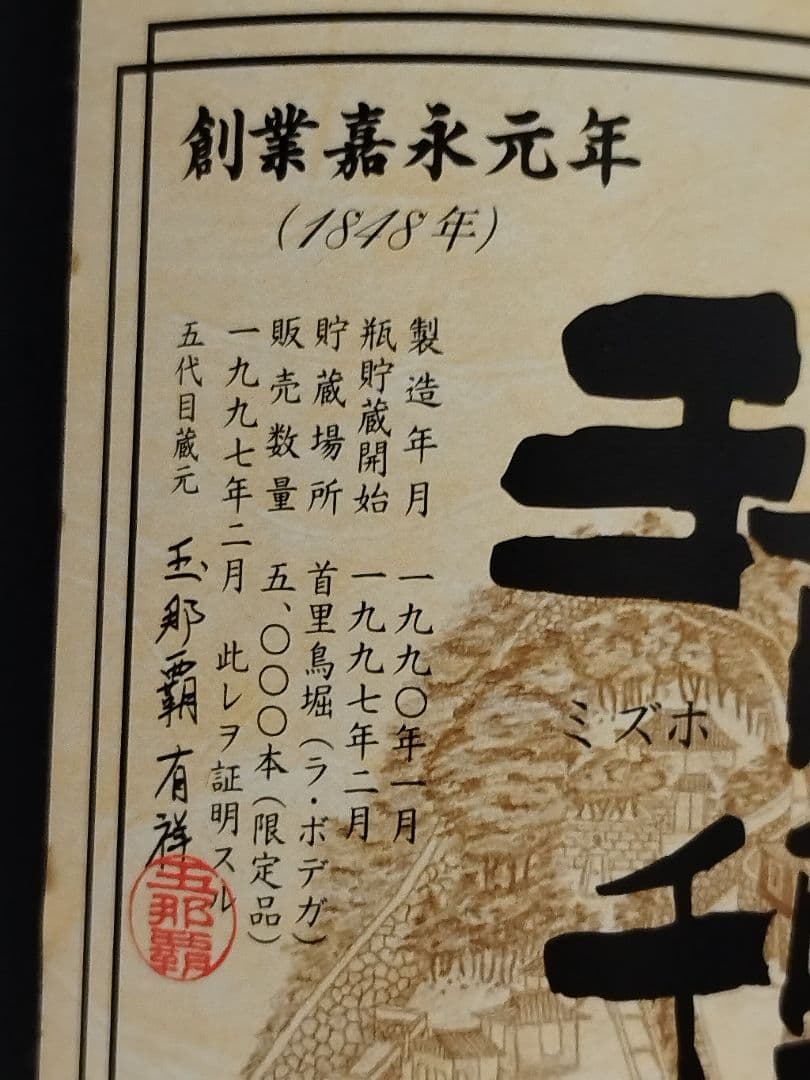 創業嘉永元年
(1848年)
製造年月 一九九〇年一月
瓶貯蔵開始 一九九七年二月
貯蔵場所 首里鳥堀(ラ・ボデガ)
販売数量 五、〇〇〇本(限定品)
一九九七年二月 此レヲ証明スル
五代目蔵元 玉那覇有祥
玉那覇
ミズホ
千